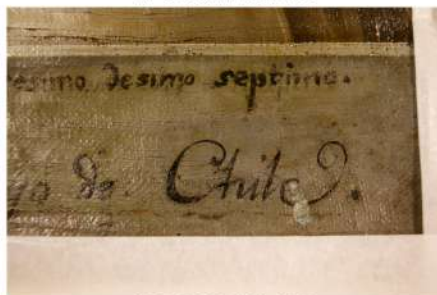 desimo septimo.
de Chile).